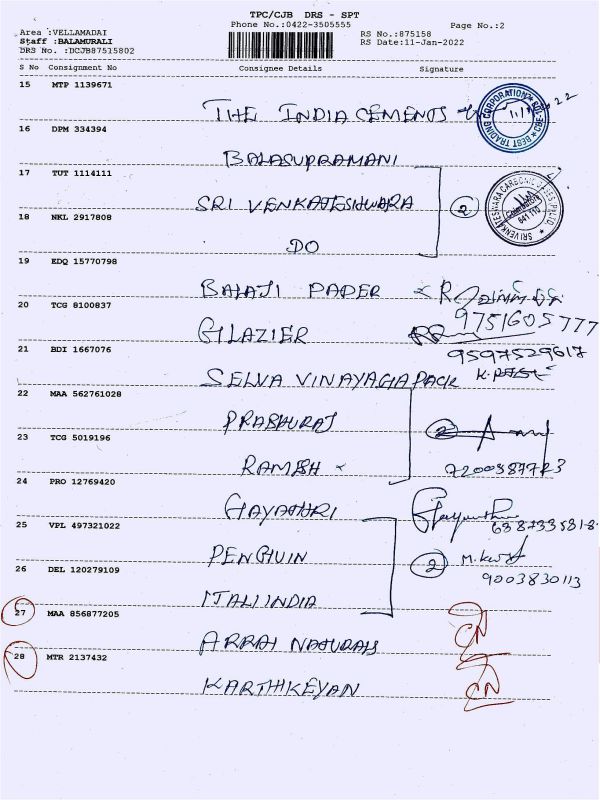 TPC/CJB DRS - SPT
Phone No.:0422-3505555 Page No.:2
Area :VELLAMADAI
Staff :BALAMURALI RS No.:875158
DRS No. :DCJB87515802 RS Date:11-Jan-2022
S No Consignment No Consignee Details Signature
15 MTP 1139671
THE INDIA CEMENTS
16 DPM 334394
BALASUPRAMANI
17 TUT 1114111
SRI VENKATESHWARA 2
18 NKL 2917808
DO
19 EDQ 15770798
BALAJI PAPER
20 TCG 8100837
9751605777
GILAZIER
21 BDI 1667076
9597529617
SELVA VINAYAGA PACK
22 MAA 562761028
PRABHURAJ 2
23 TCG 5019196
RAMESH 7200387723
24 PRO 12769420
GAYATHRI
25 VPL 497321022
PENGUIN 2
26 DEL 120279109
9003830113
ITALIINDIA
27 MAA 856877205
ARRAI NATURALS CN
28 MTR 2137432
KARTHIKEYAN CN